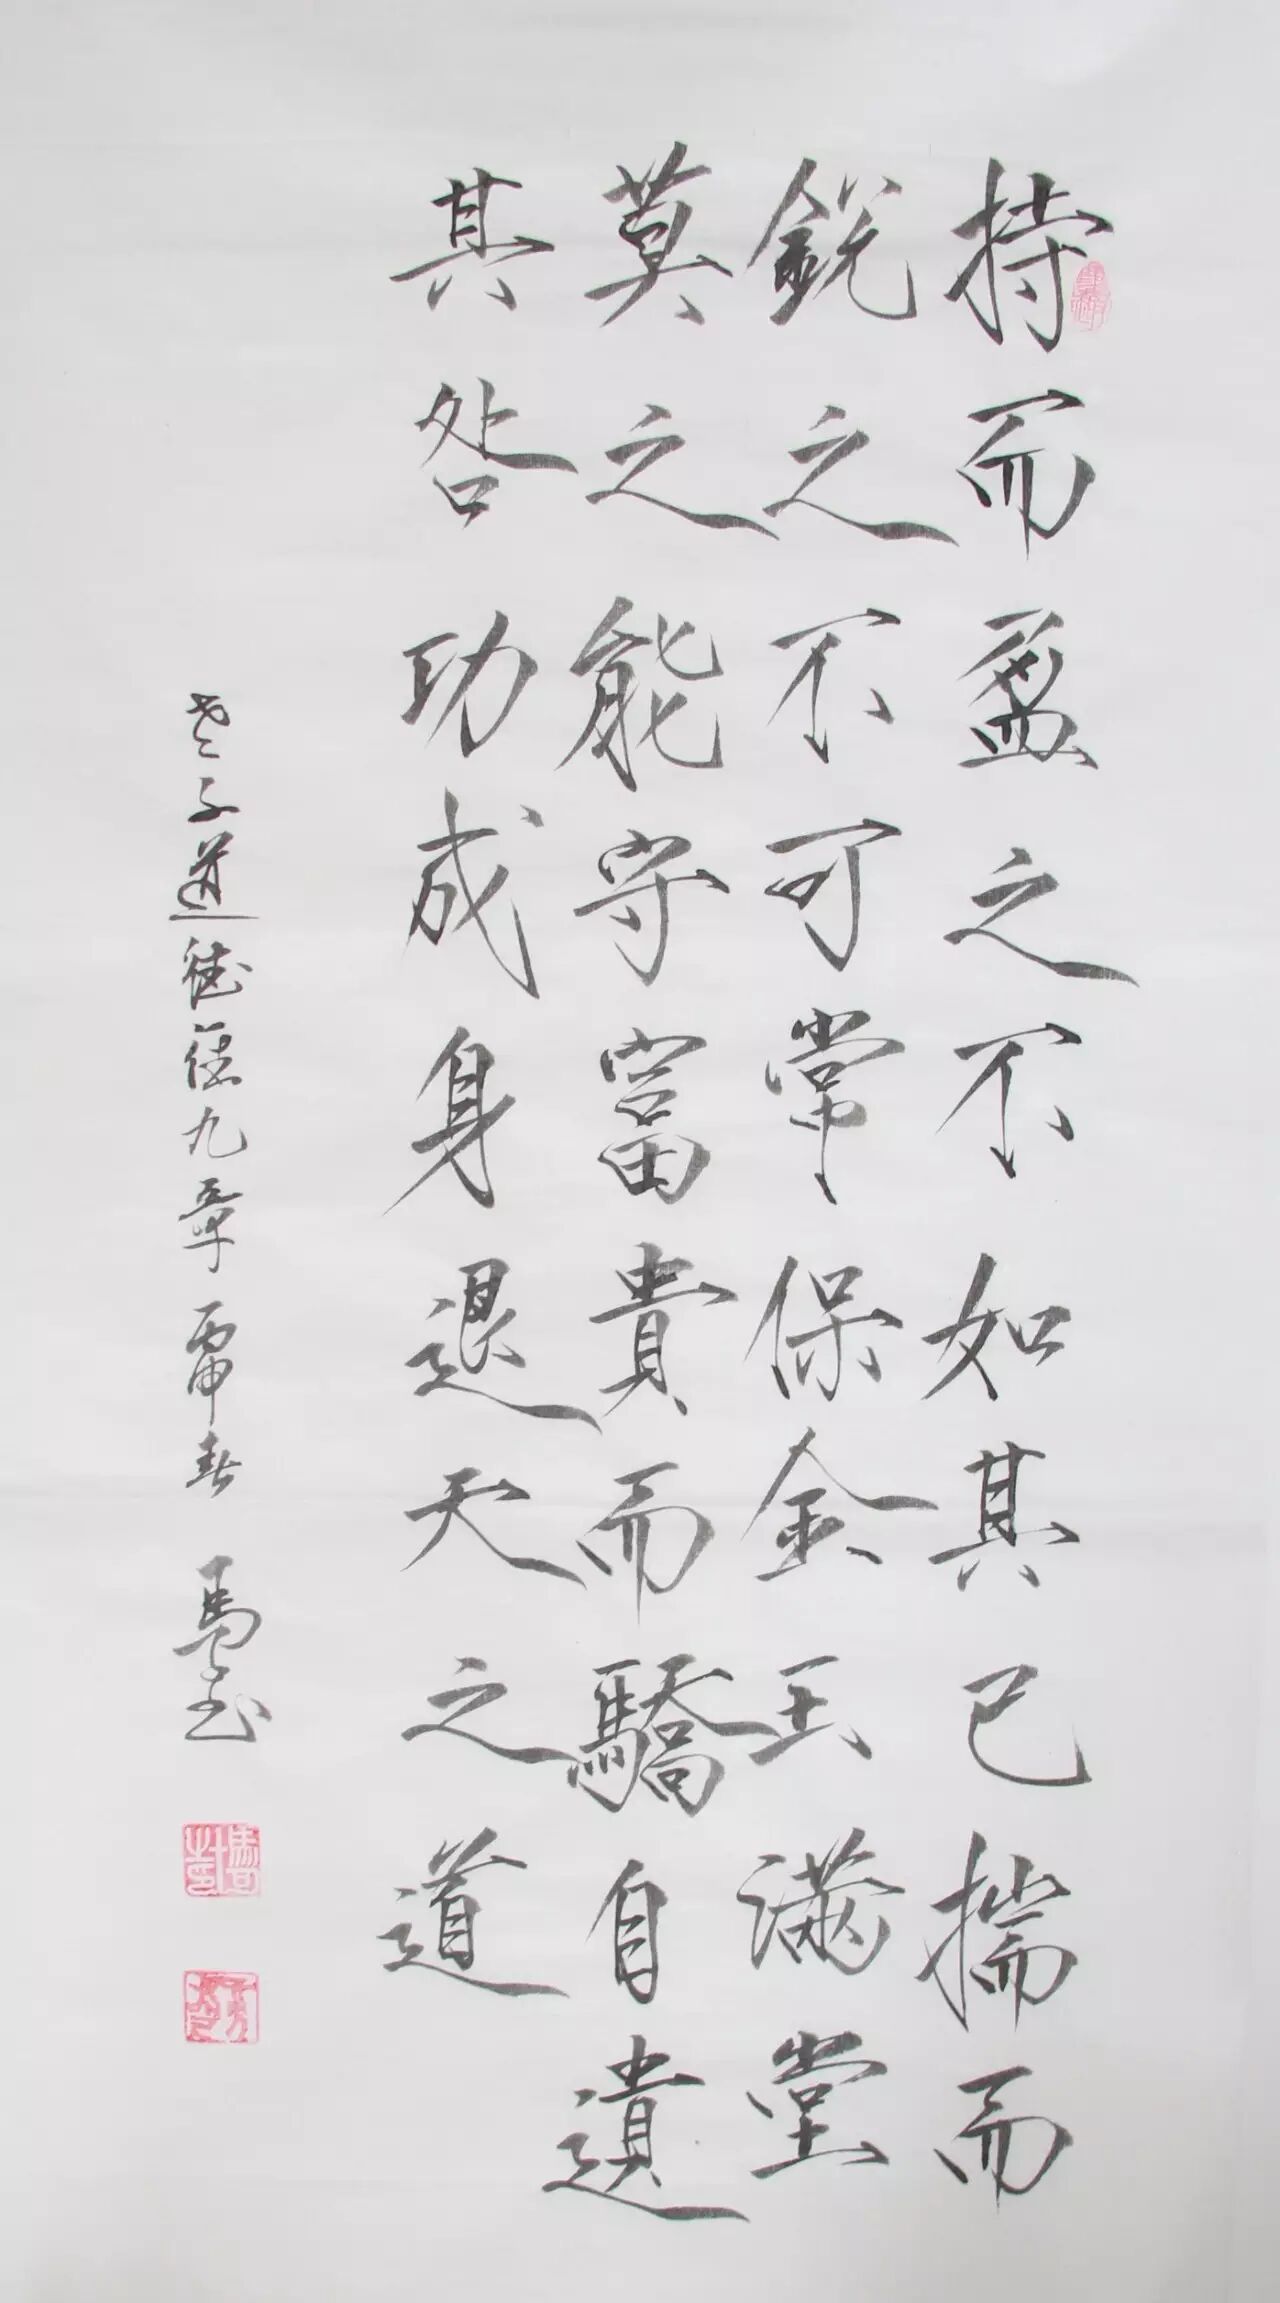 持而盈之不如其已揣而
銳之不可常保金玉滿堂
莫之能守富貴而驕自遺
其咎功成身退天之道
老子道德經九章丙申春 馬書